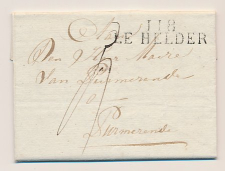 118
LE HELDER
Den Heer Maire
Van Purmerende
Purmerende